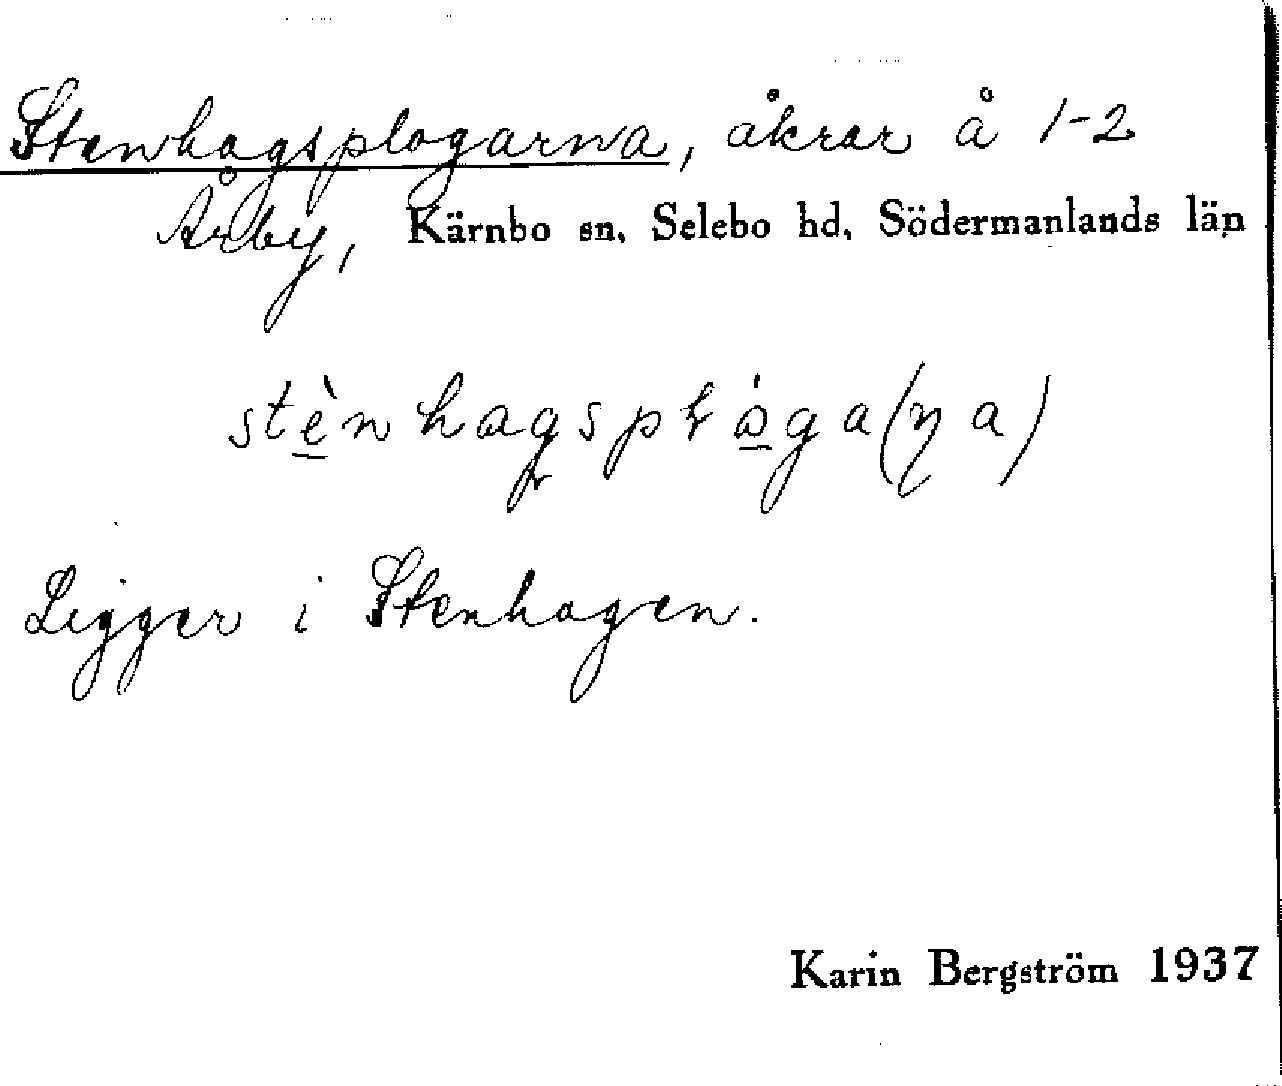 Stenhagsplogarna, åkrar å 1-2
Årby, Kärnbo sn, Selebo hd, Södermanlands län
Ligger i Stenhagen.
Karin Bergström 1937